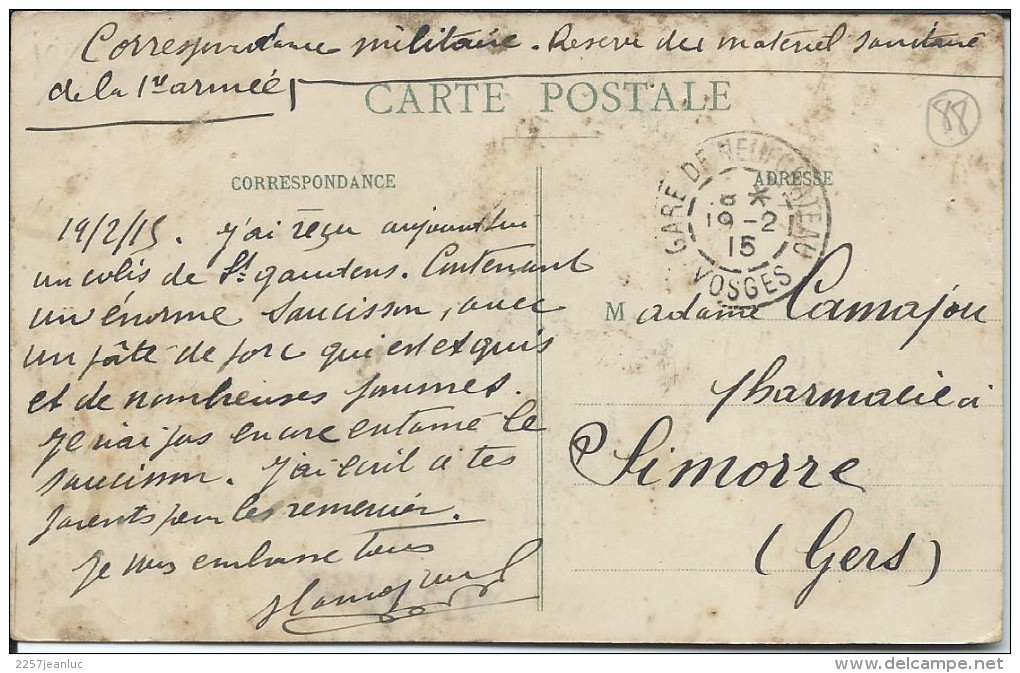 Correspondance militaire. Reserve de materiel sanitaire
de la 1re armée
CARTE POSTALE
88
CORRESPONDANCE
ADRESSE
GARE DE NEUFCHATEAU
8 *
19-2
15
VOSGES
19/2/15. J'ai reçu aujourd'hui
un colis de St gaudens. Contenant
un énorme saucisson, avec
un pâté de porc qui est exquis
et de nombreuses pommes.
Je n'ai pas encore entamé le
saucisson. J'ai écrit à tes
parents pour les remercier.
Je vous embrasse tous
Madame Camajou
pharmacie à
Simorre
(Gers)
2257jeanluc
http://www.delcampe.net